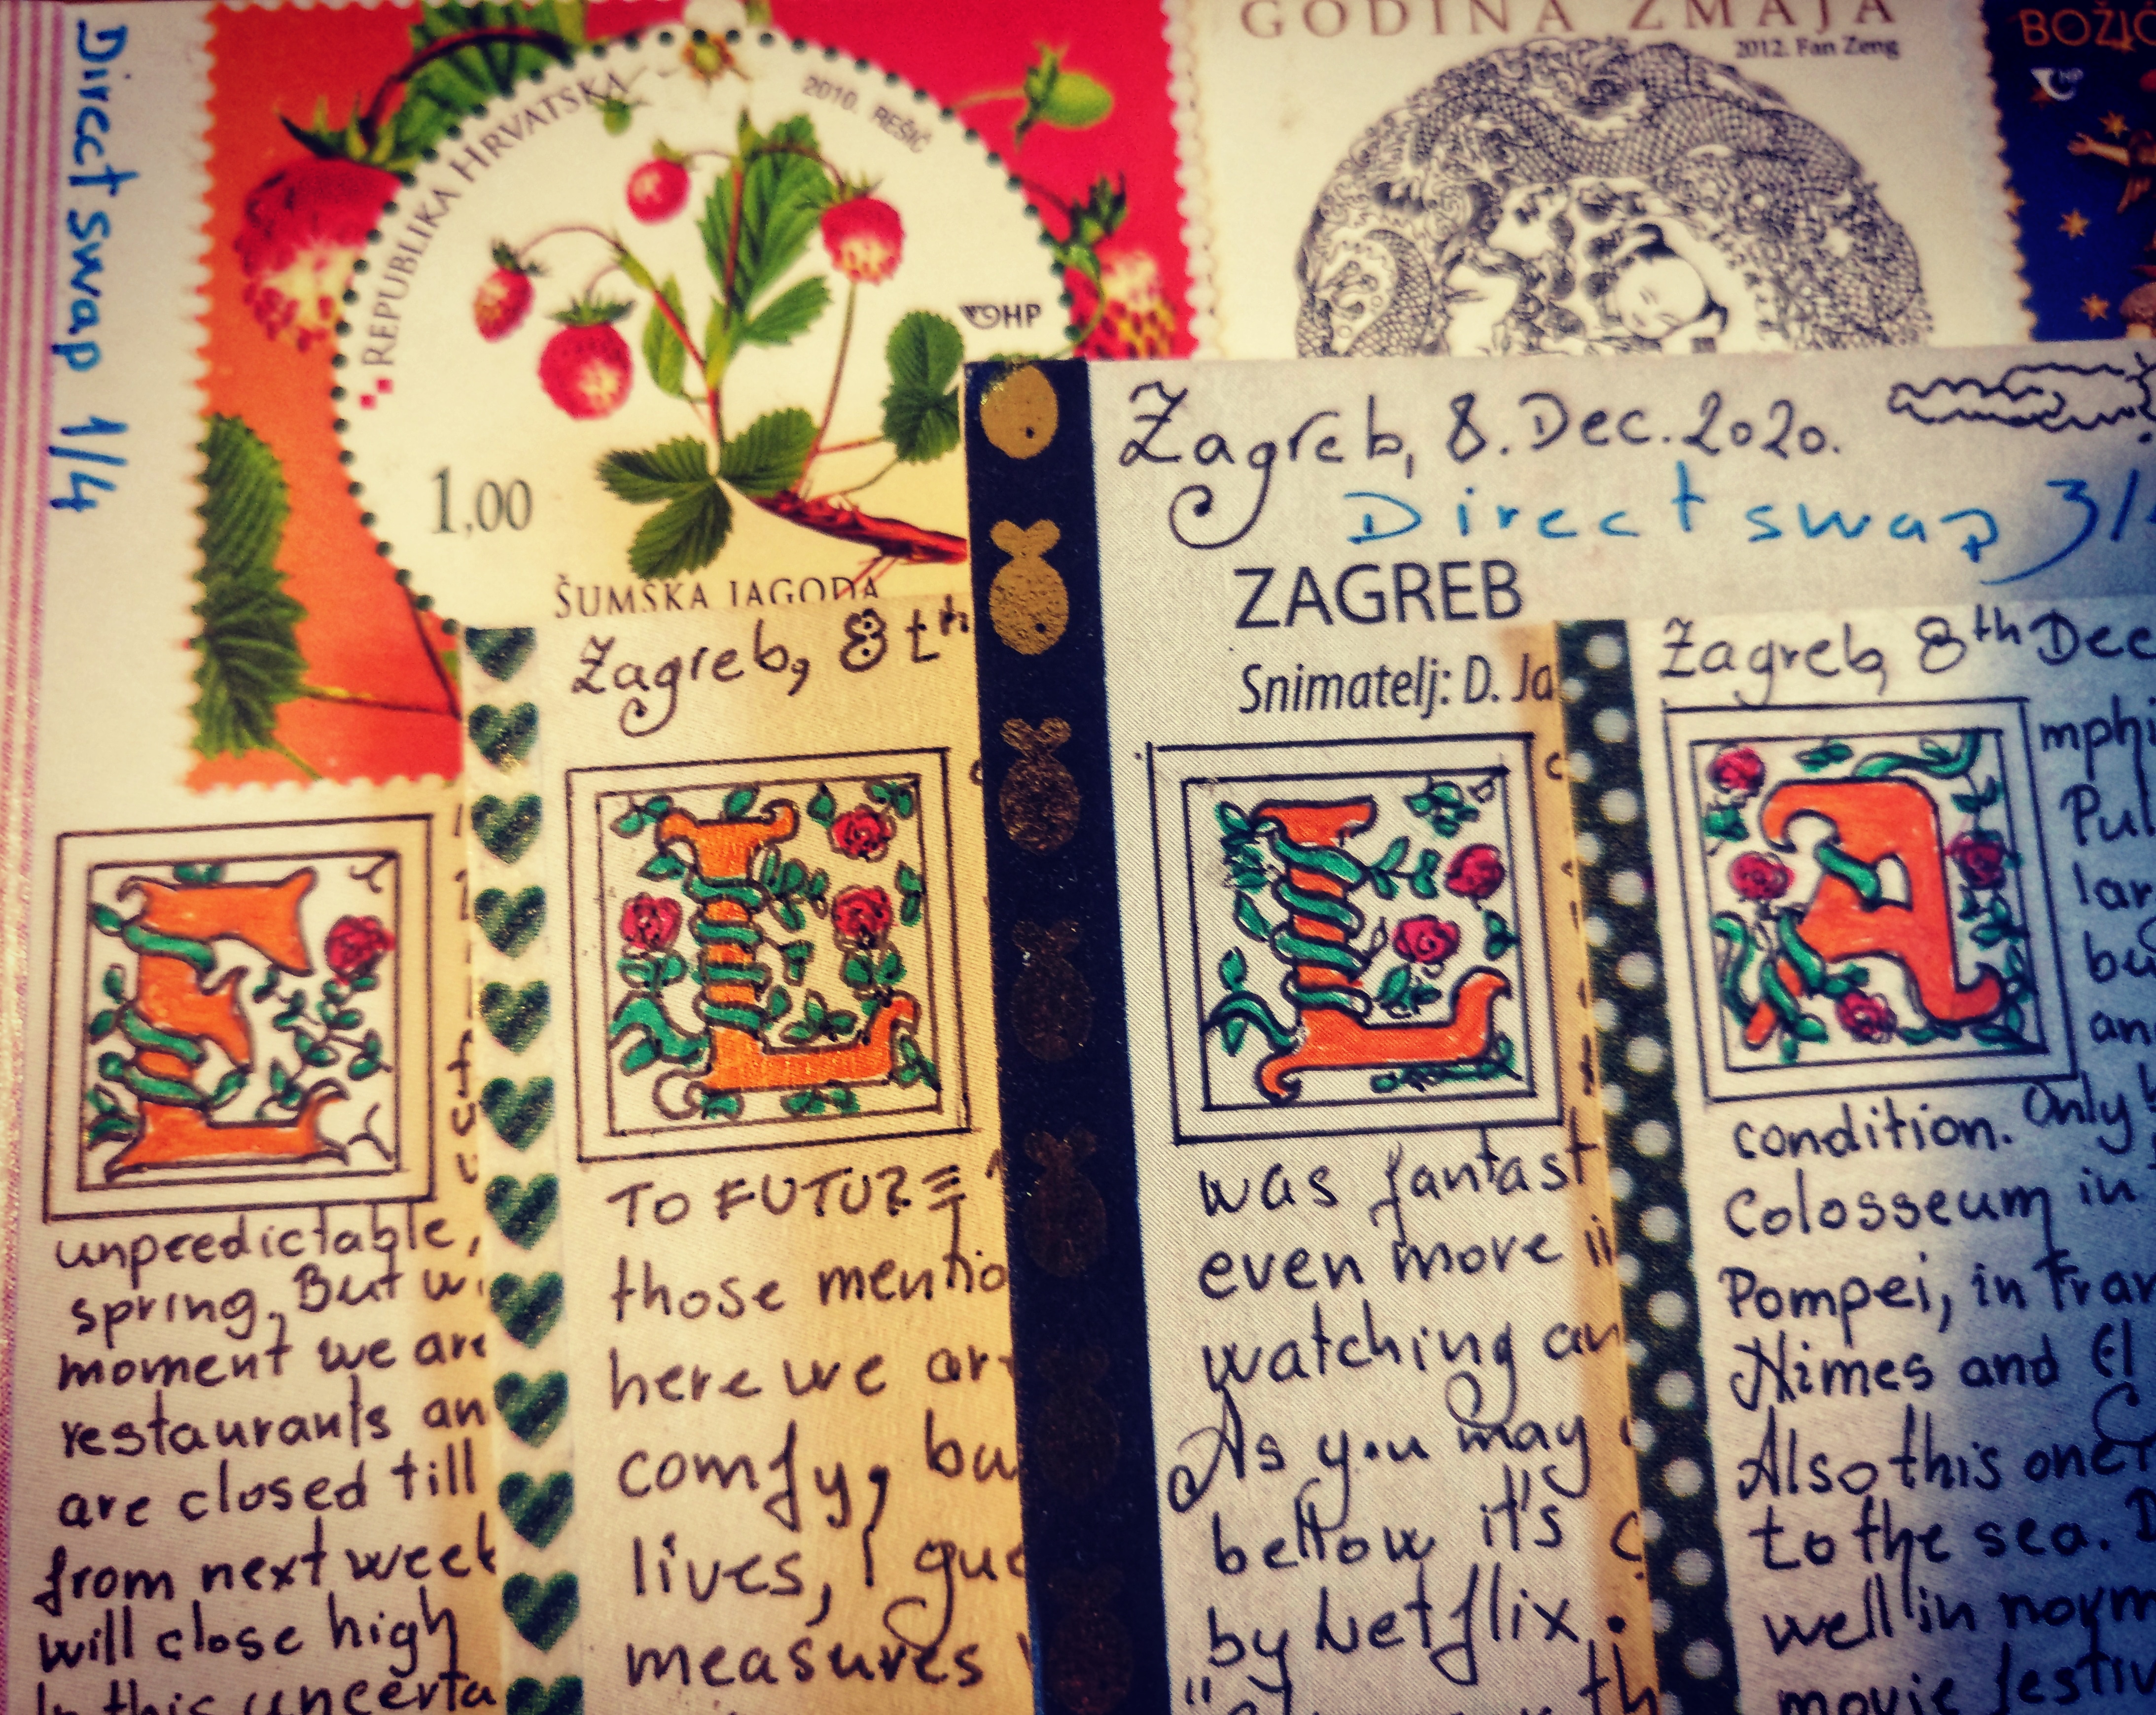 Direct swap 1/4
REPUBLIKA HRVATSKA
2010. REŠIĆ
HP
1,00
ŠUMSKA JAGODA
GODINA ZMAJA
2012. Fan Zeng
BOŽIĆ
HP
E
unpredictable,
spring. But
moment we are
restaurants an
are closed till
from next week
will close high
In this uncerta
Zagreb, 8th
L
TO FUTURE
those mentio
here we ar
comfy, bu
lives, I gue
measures
Zagreb, 8. Dec. 2020.
Direct swap 3/
ZAGREB
Snimatelj: D. Ja
L
was fantast
even more
watching an
As you may
bellow it's
by Netflix.
Zagreb, 8th Dec
A
mphi
Pul
lar
be
an
condition. Only
Colosseum in
Pompei, in Fran
Nimes and El
Also this one
to the sea.
well in norm
movie festiv